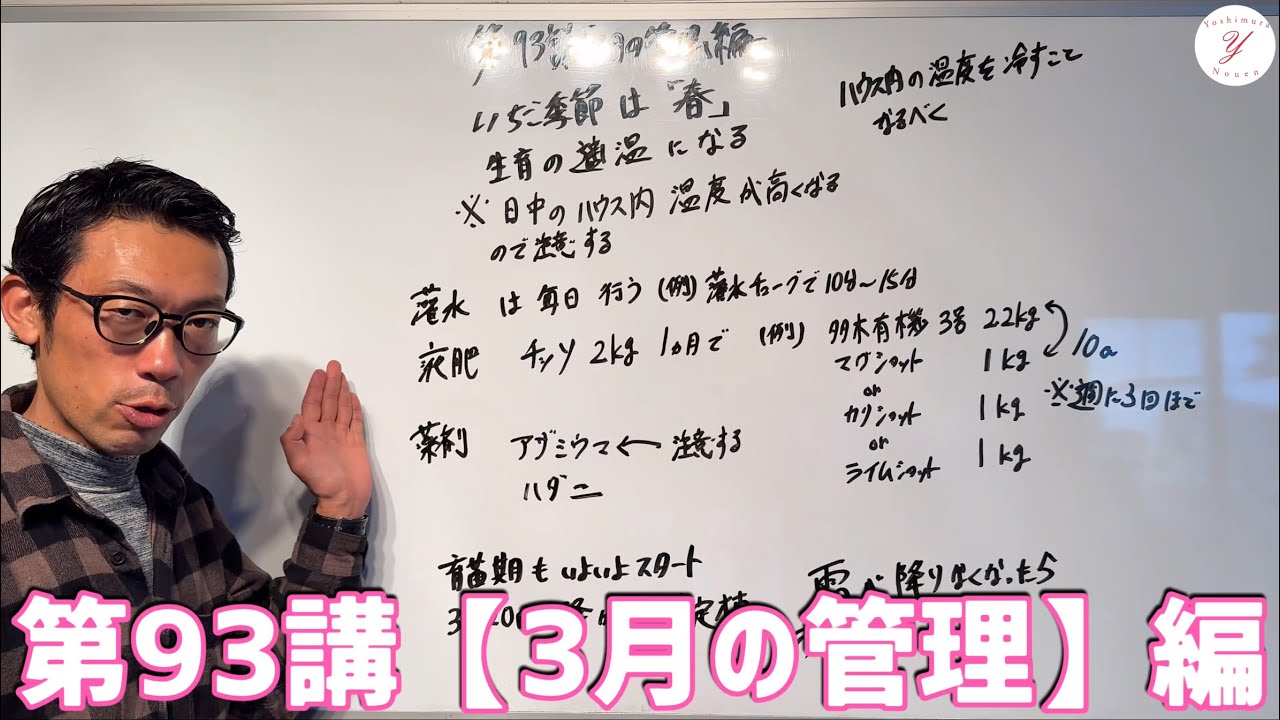 Yoshimura
Y
Nouen
第93講 3月の管理編
いちご季節は「春」
生育の適温になる
※日中のハウス内温度が高くなる
ので注意する
ハウス内の温度を冷すこと
なるべく
灌水は毎日行う(例)灌水チューブで10分〜15分
液肥 チッソ2kg 1ヵ月で (例)多木有機3号 22kg
マグショット 1kg
or
カリショット 1kg
or
ライムショット 1kg
10a
※週に3回ほど
薬剤 アザミウマ←注意する
ハダニ
育苗期もいよいよスタート
定植
降りなくなったら
第93講【3月の管理】編